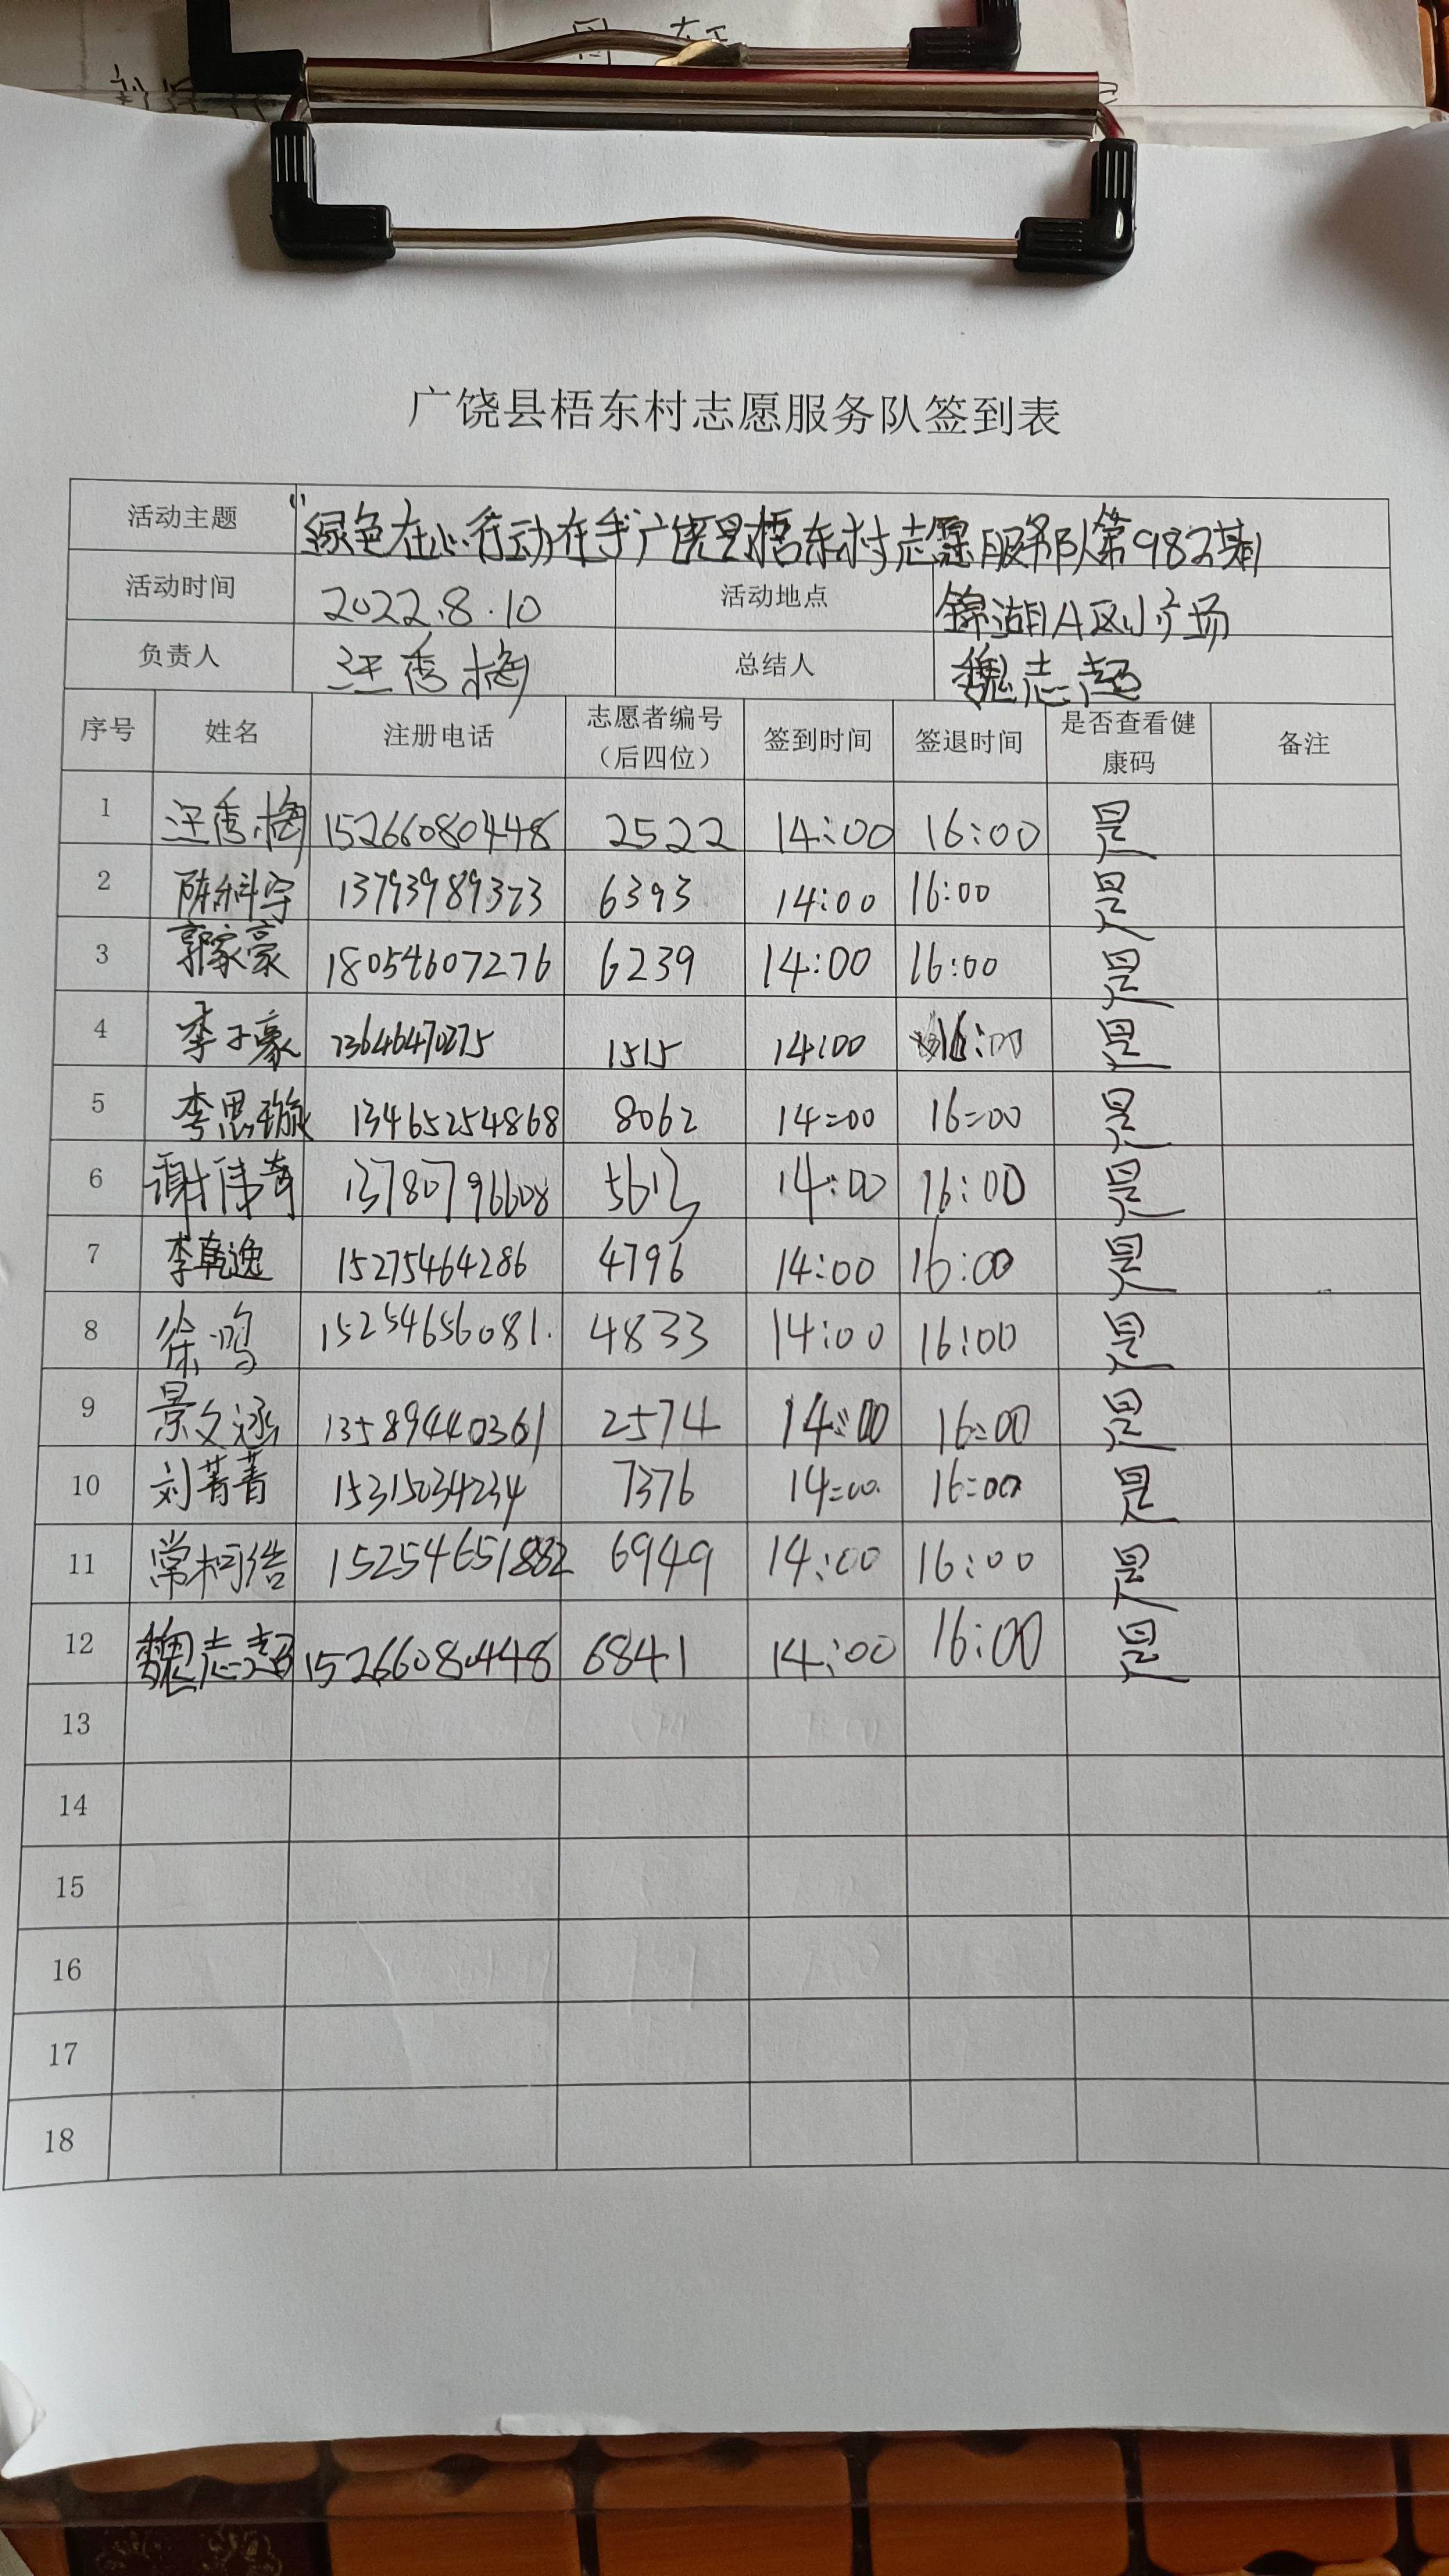 广饶县梧东村志愿服务队签到表
活动主题 "绿色在心行动在手"广饶县梧东村志愿服务队第982期
活动时间 2022.8.10 活动地点 锦湖A区小广场
负责人 汪秀梅 总结人 魏志超
序号 姓名 注册电话 志愿者编号（后四位） 签到时间 签退时间 是否查看健康码 备注
1 汪秀梅 15266080448 2522 14:00 16:00 是
2 陈科宇 13793989373 6393 14:00 16:00 是
3 郭家豪 18054607276 6239 14:00 16:00 是
4 李子豪 13646470275 1515 14:00 16:00 是
5 李思璇 13465254868 8062 14:00 16:00 是
6 谢伟奇 13780796608 5613 14:00 16:00 是
7 李乾逸 15275464286 4796 14:00 16:00 是
8 徐鸣 15254656081. 4833 14:00 16:00 是
9 景文涵 13589440361 2574 14:00 16:00 是
10 刘菁菁 15315034234 7376 14:00 16:00 是
11 常柯浩 15254651882 6949 14:00 16:00 是
12 魏志超 15266080448 6841 14:00 16:00 是
13
14
15
16
17
18